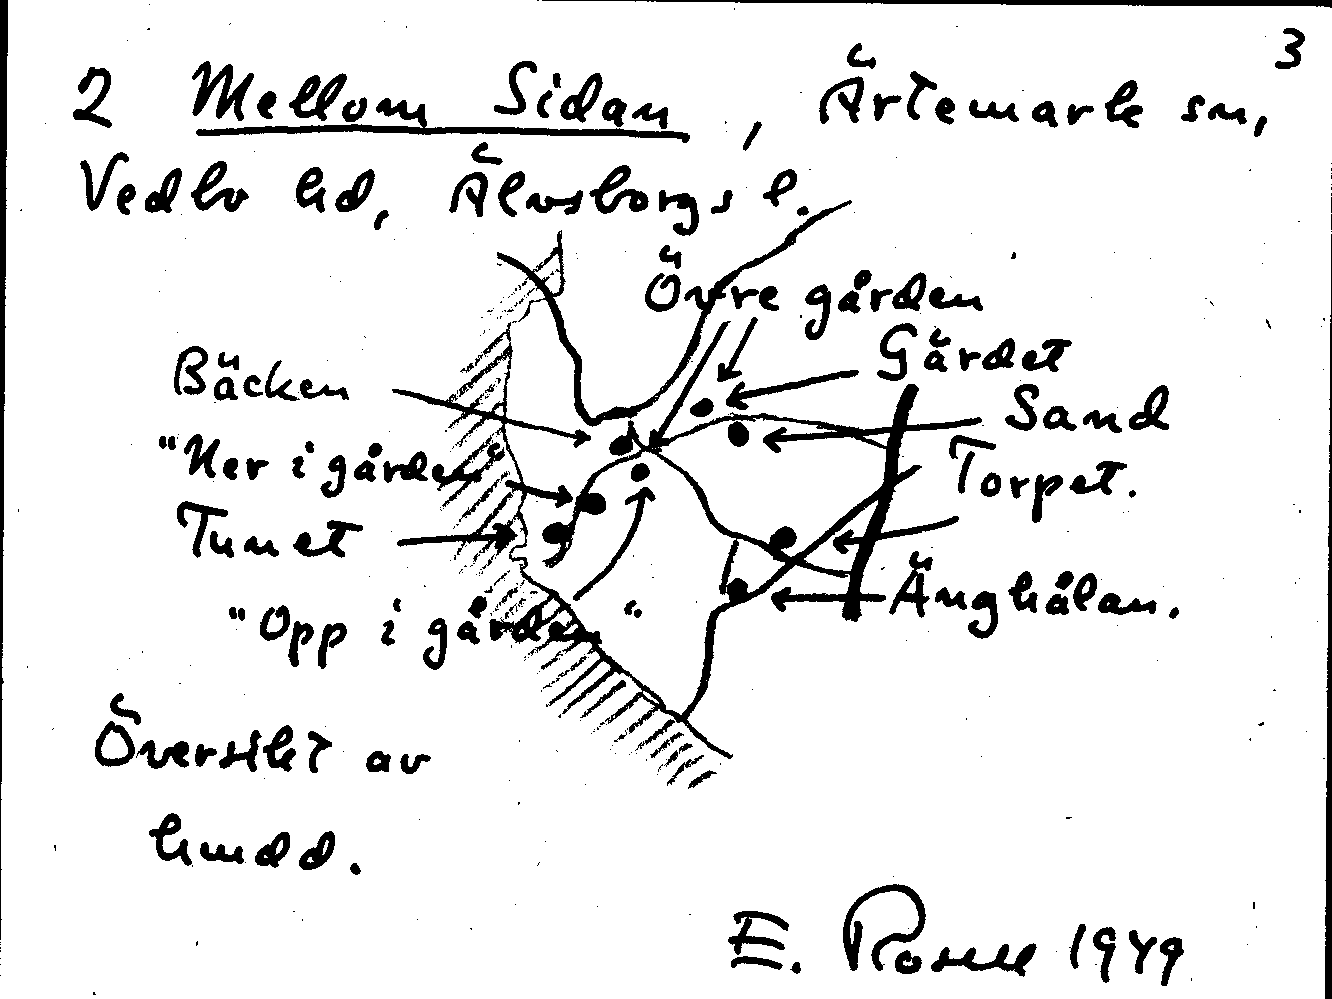 3
2 Mellom Sidan, Ärtemark sn,
Vedbo hd, Älvsborgs l.
Övre gården
Gärdet
Bäcken
Sand
"Ner i gården"
Torpet.
Tunet
Änghålan.
"Opp i gården"
Översikt av
E. 1949